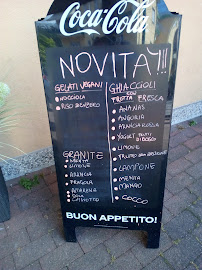 Coca-Cola
NOVITÀ!!!
GELATI VEGANI
NOCCIOLA
RISO
GHIACCIOLI
CON
FRUTTA FRESCA
ANANAS
ANGURIA
ARANCIA ROSSA
YOGURT FRUTTI
DI BOSCO
LIMONE
FRUTTI
LAMPONE
MENTA
MANGO
COCCO
GRANITE
MENTA
LIMONE
ARANCIA
FRAGOLA
AMARENA
COLA
CHINOTTO
BUON APPETITO!